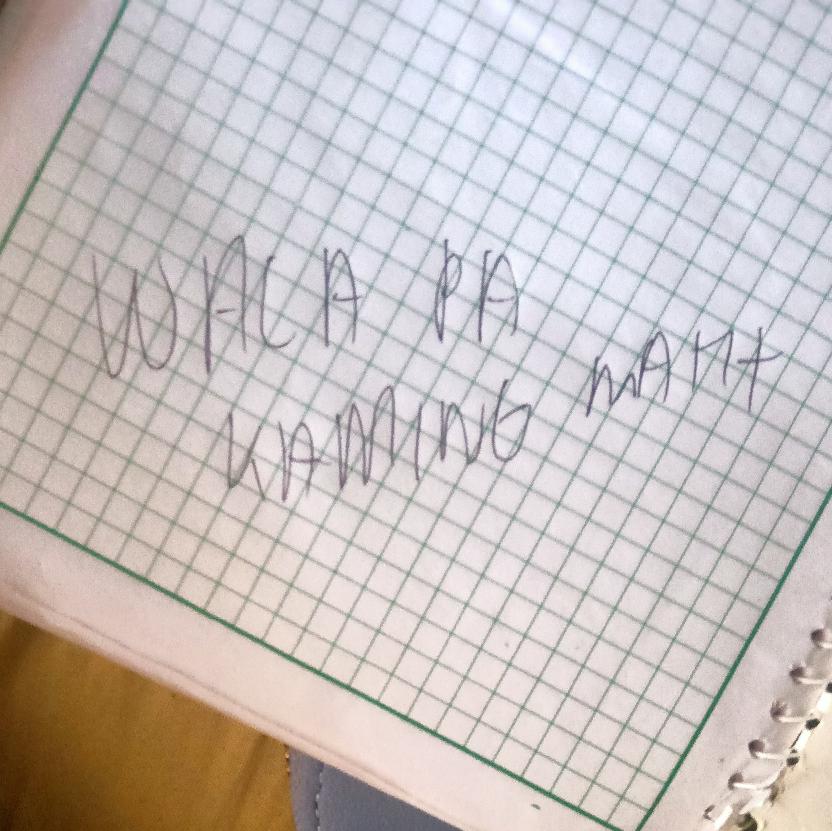 WALA PA
KAMING MATH